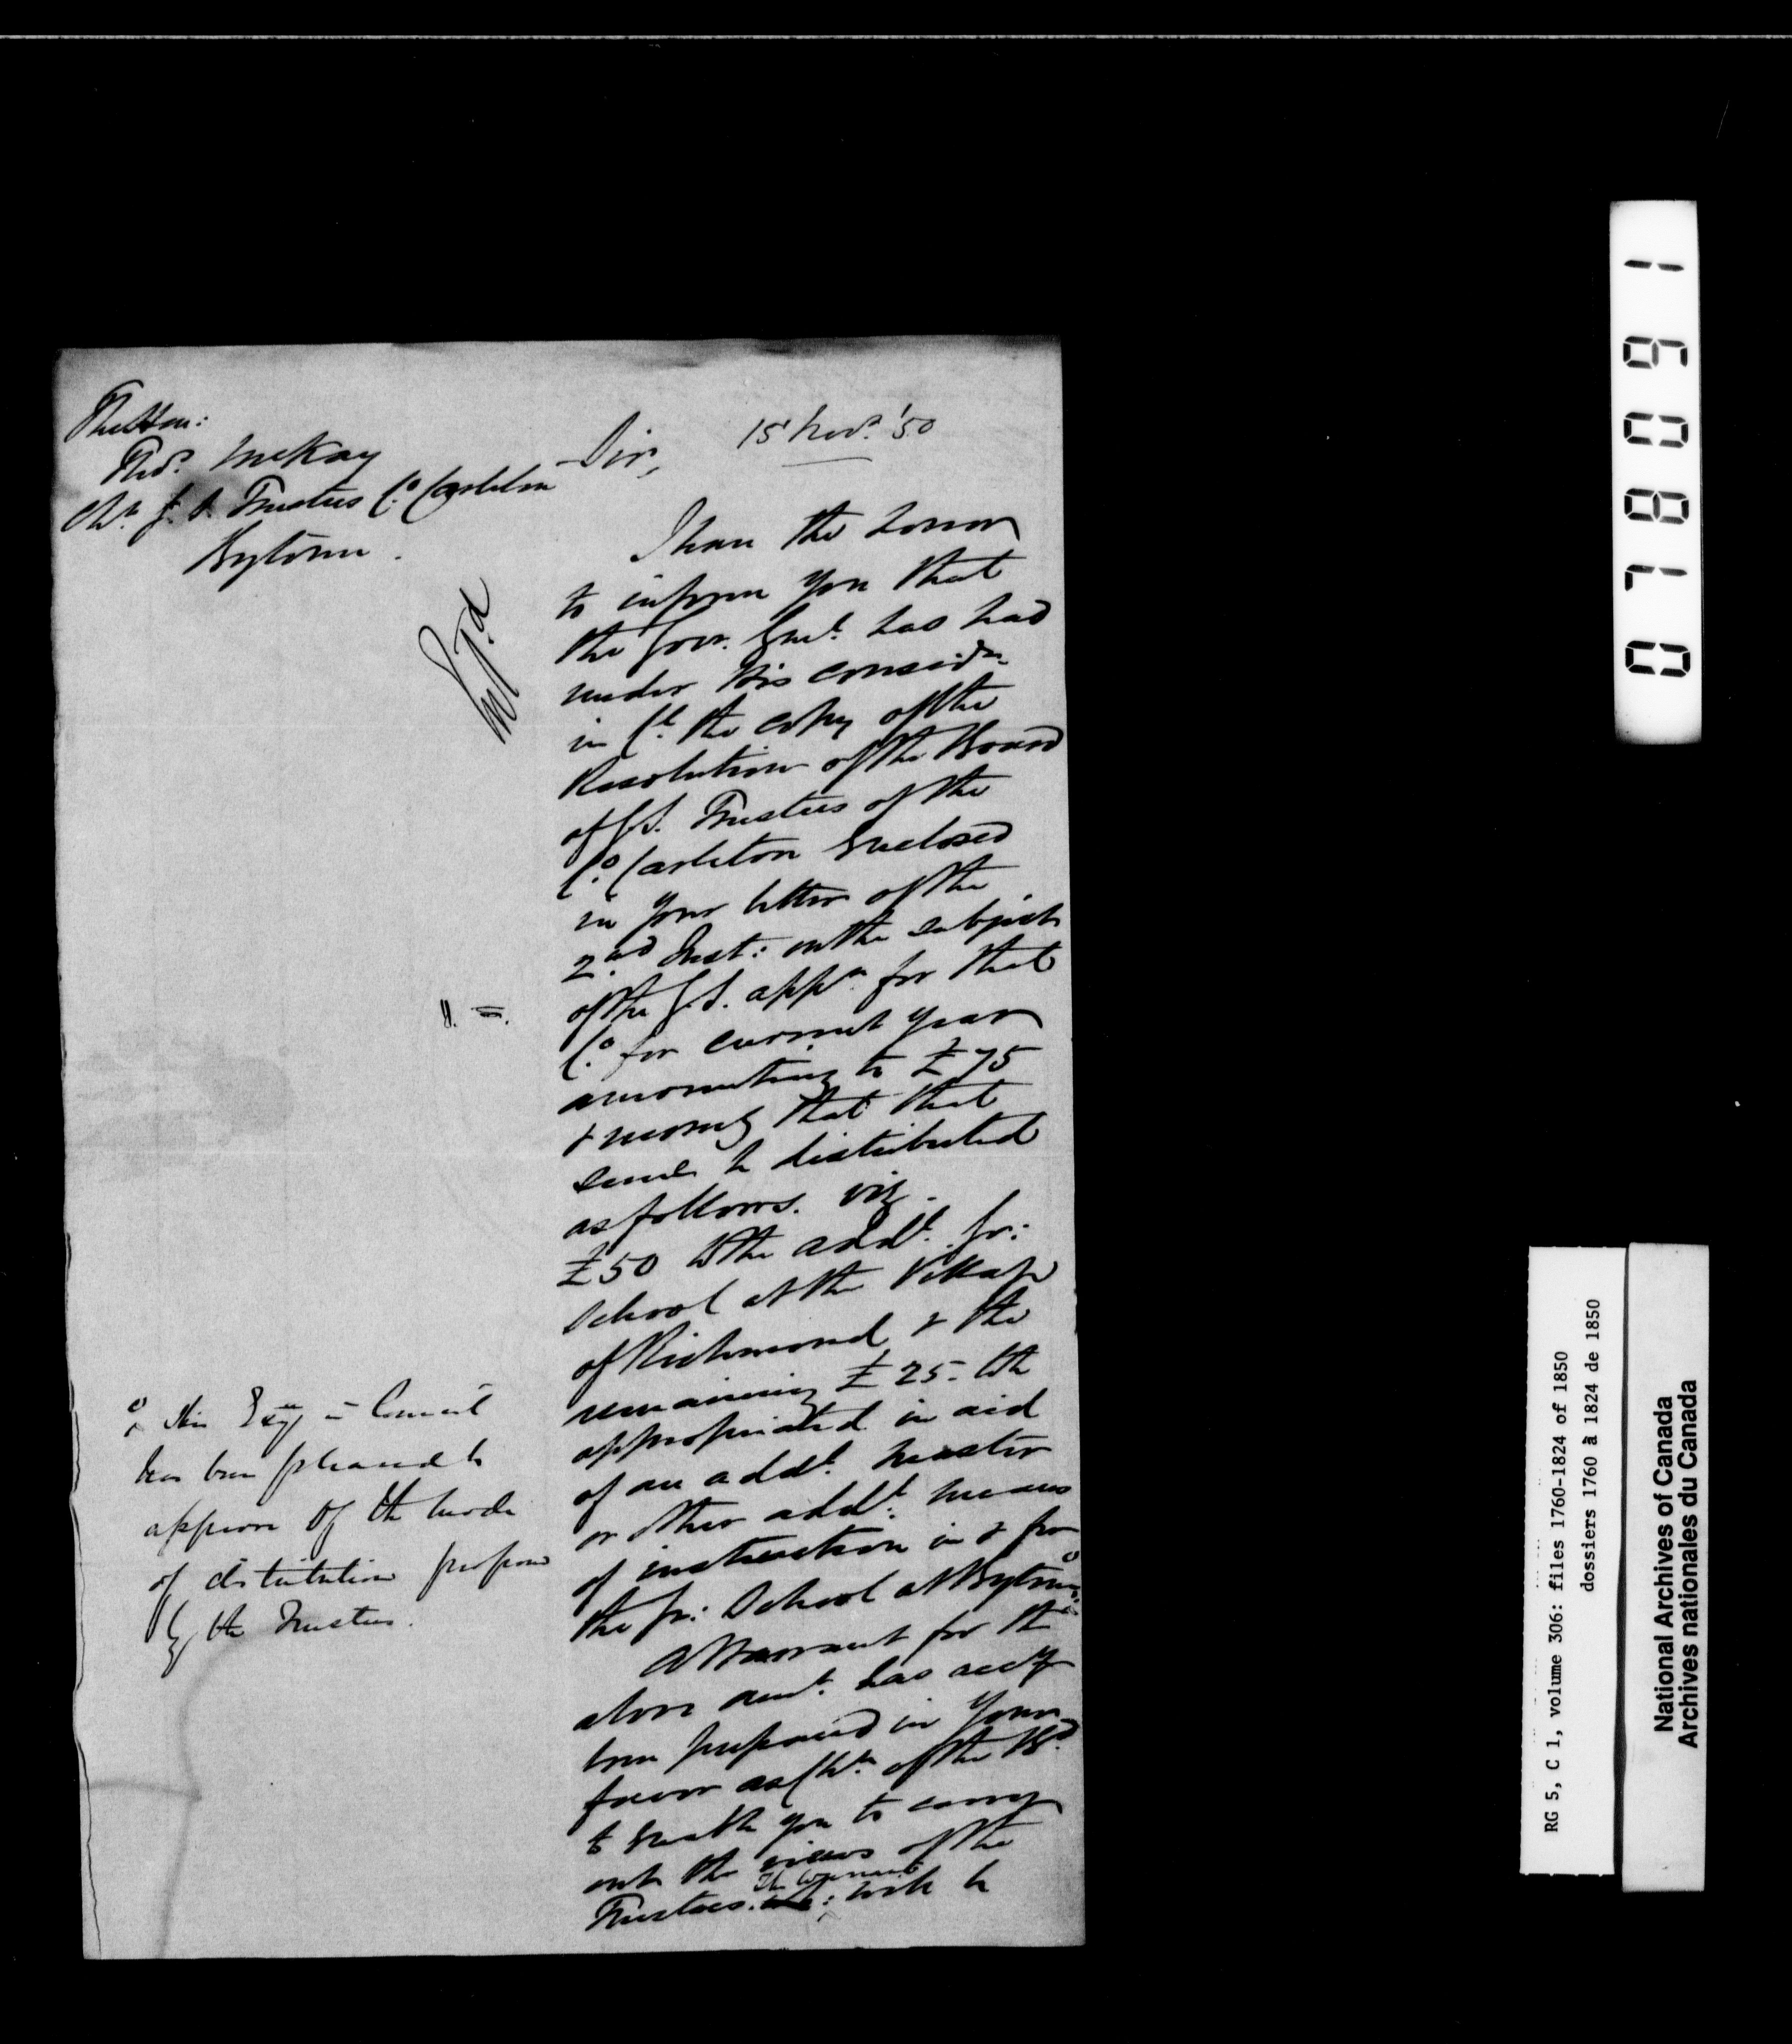 The Hon:
Thos. McKay
Chn. G. S. Trustees Co. Carleton
Bytown.
15 Novr. '50
Sir,
I have the honor
to inform you that
the Govr. Genl. has had
under His consideron
in Cl. the copy of the
Resolution of the Board
of G.S. Trustees of the
Co. Carleton Enclosed
in your letter of the
2nd Inst: on the subject
of the G.S. appn. for that
Co. for current year
amounting to £75
& recomg that that
sum be distributed
as follows. viz.
£50 to the addl. Gr:
School at the Village
of Richmond & the
remaining £25 - to be
appropriated in aid
of an addl. master
or other addl. means
of instruction in & for
the Gr: School at Bytown.
His Excy in Council
has been pleased to
approve of the mode
of distribution proposed
by the Trustees.
A Warrant for the
above amt. has accy
been prepared in your
favor as Chn. of the Bd.
to enable you to carry
out the views of the
Trustees. The Warrant will be
078091
RG 5, C 1, volume 306: files 1760-1824 of 1850
dossiers 1760 à 1824 de 1850
National Archives of Canada
Archives nationales du Canada